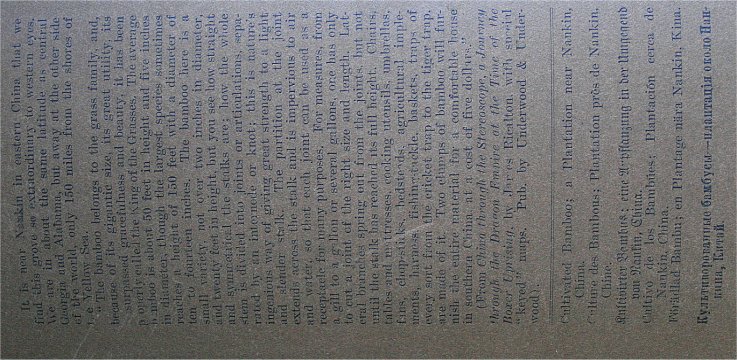 It is near Nankin in eastern China that we
find this grove so extraordinary to western eyes.
We are in about the same latitude as central
Georgia and Alabama, but away at the other side
of the world, only 150 miles from the shores of
the Yellow Sea.
"The bamboo belongs to the grass family, and,
because of its gigantic size, its great utility, its
unsurpassed gracefulness and beauty, it has been
poetically called the King of the Grasses. The average
bamboo is about 50 feet in height and five inches
in diameter, though the largest species sometimes
reaches a height of 150 feet with a diameter of
ten to fourteen inches. The bamboo here is a
small variety not over two inches in diameter,
and twenty feet in height, but you see how straight
and symmetrical the stalks are; how the whole
stem is divided into joints or articulations, sepa-
rated by an internode or knot; this is nature's
ingenous way of adding great strength to a light
and slender stalk. The partition at the joint
extends across the stalk and is impervious to air
and water so that each joint can be used as a
receptacle for many purposes. For measures, from
a gill to a gallon or several gallons, one has only
to cut a joint of the right size and length. Lat-
eral branches spring out from the joints, but not
until the stalk has reached its full height. Chairs,
tables and mattresses, cooking utensils, umbrellas,
fans, chop-sticks, bedsteads, agricultural imple-
ments, harness, fishing-tackle, baskets, traps of
every sort from the cricket trap to the tiger trap,
are made of it. Two clumps of bamboo will fur-
nish the entire material for a comfortable house
in southern China, at a cost of five dollars."
(From China through the Stereoscope, a Journey
through the Dragon Empire at the Time of the
Boxer Uprising, by James Ricalton, with special
"keyed" maps. Pub. by Underwood & Under-
wood).
Cultivated Bamboo; a Plantation near Nankin,
China.
Culture des Bambous; Plantation près de Nankin,
Chine.
Kultivirter Bambus; eine Anpflanzung in der Umgegend
von Nankin, China.
Cultivo de los Bambúes; Plantación cerca de
Nankin, China.
Förädlad Bambu; en Plantage nära Nankin, Kina.
Культивированные бамбусы—плантація около Нан-
кина, Китай.